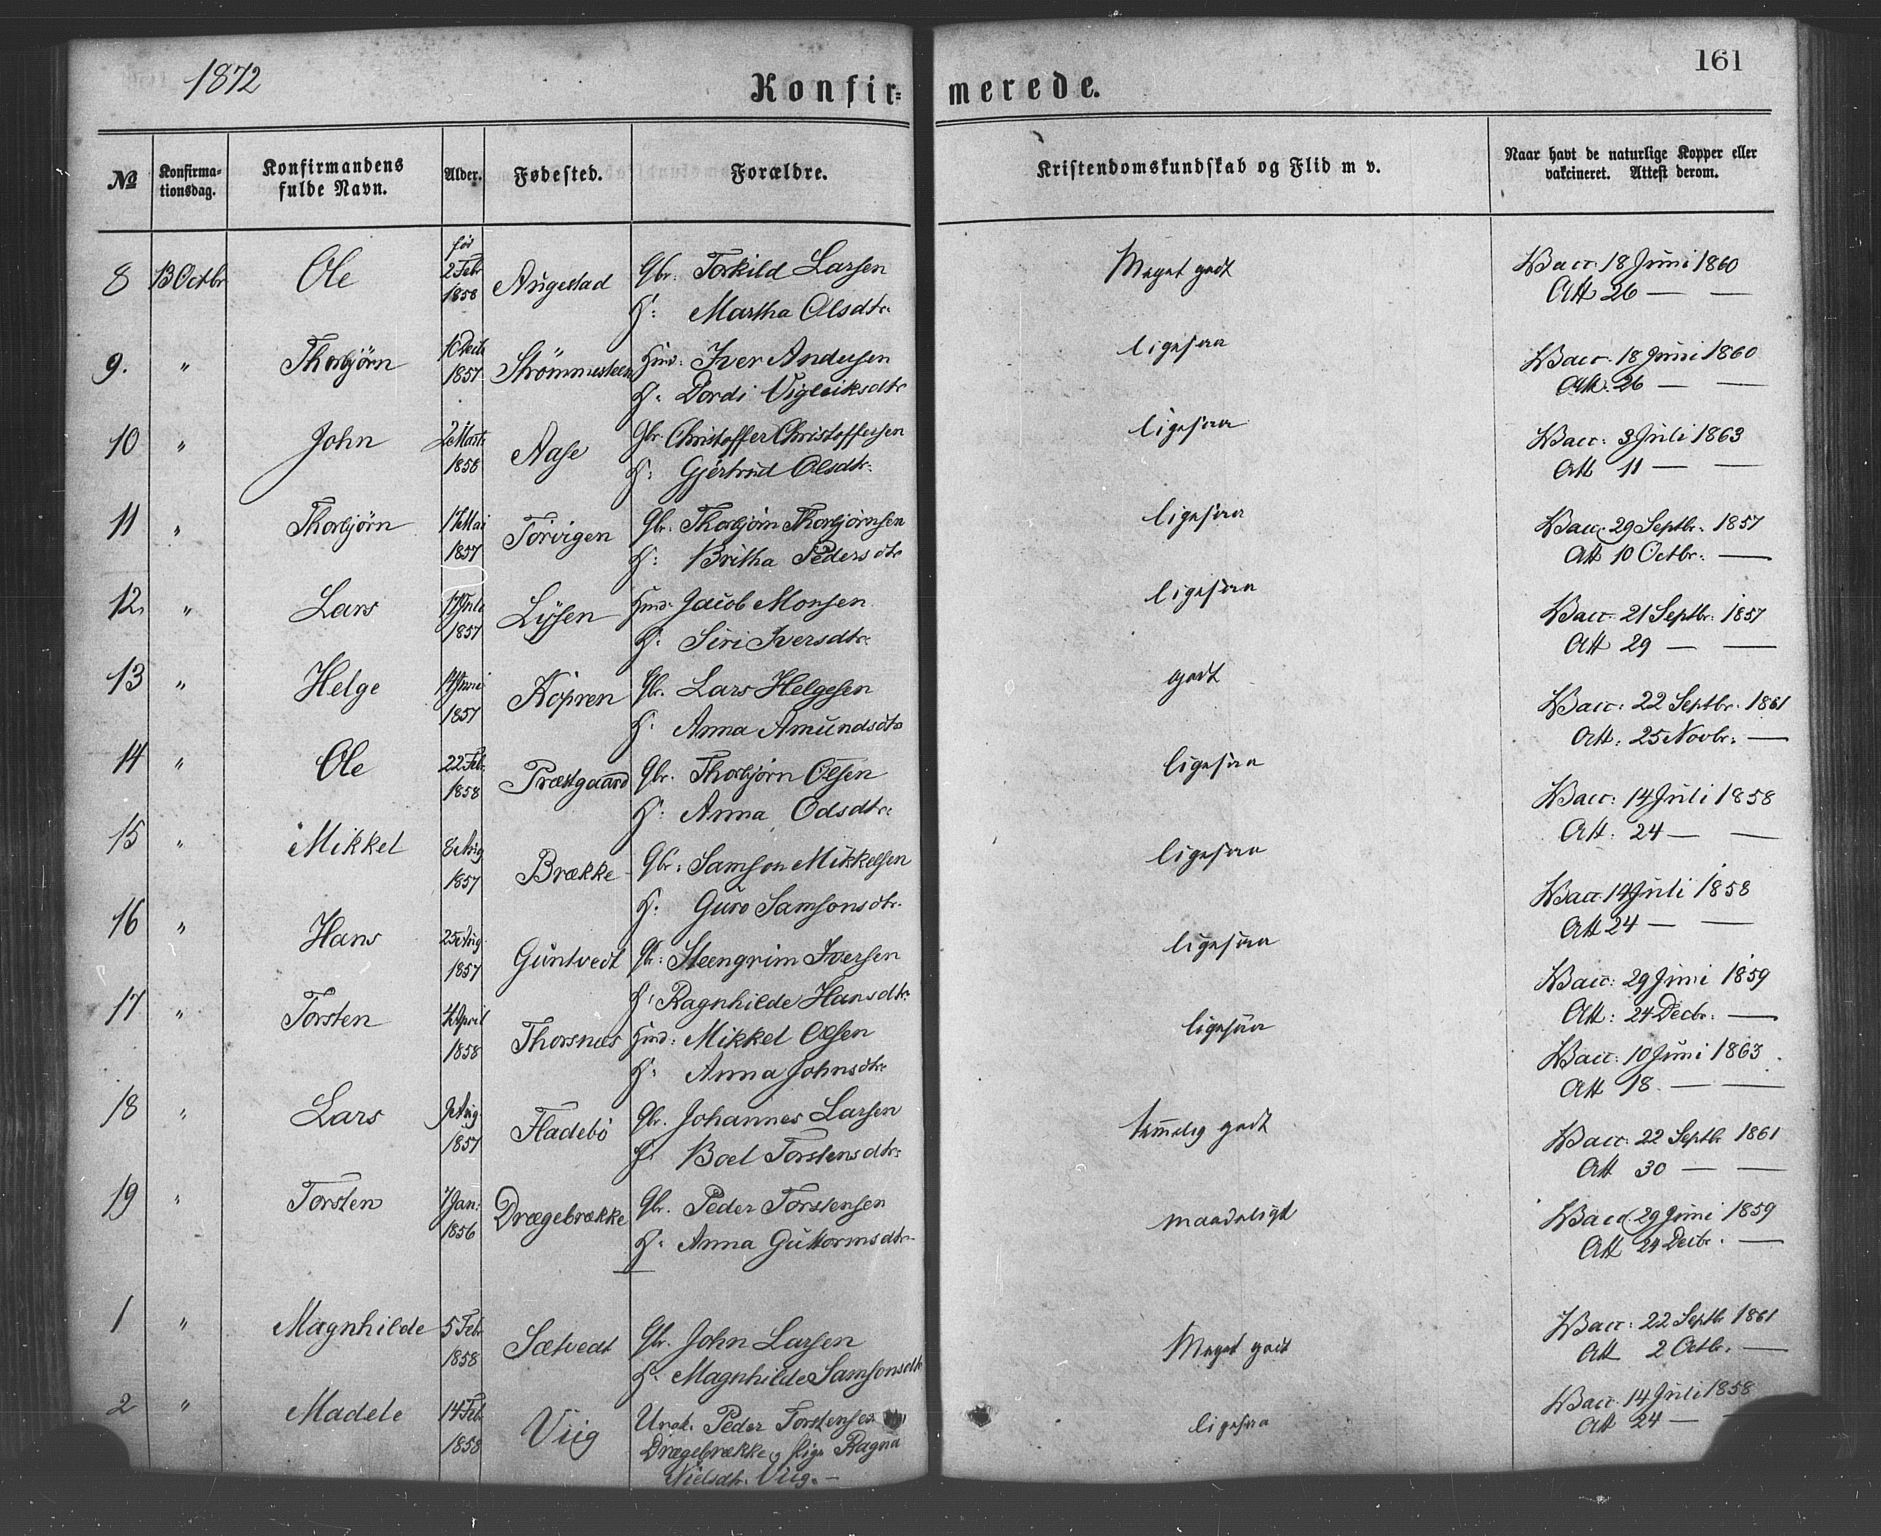 1872
161
Konfir=
merede.
№
Konfirma-
tionsdag.
Konfirmandens
fulde Navn.
Alder.
Fødested.
Forældre.
Kristendomskundskab og Flid m v.
Naar havt de naturlige Kopper eller
vakcineret. Attest derom.
8 13 Octbr Ole 2 Febr 1858 Augestad Gbr. Torkild Larsen Meget godt Vacc. 18 Juni 1860
H: Martha Olsdtr. Att 26 — —
9. " Thorbjörn 1857 Strömmesteen Hmd: Iver Andersen ligesaa Vacc. 18 Juni 1860
H. Dordi Vigleiksdtr Att. 26 — —
10 " John 1858 Aase Gbr. Christoffer Christoffersen ligesaa Vacc: 3 Juli 1863
H: Gjertrud Olsdtr. Att 11 — —
11 " Thorbjörn 17 Mai 1857 Torvigen Gbr. Thorbjörn Thorbjörnsen ligesaa Vacc. 29 Septbr. 1857
H: Britha Pedersdtr Att 10 Octbr. —
12. " Lars 1857 Lysen Hmd. Jacob Monsen ligesaa Vacc. 21 Septbr. 1857
H. Siri Iversdtr. Att 29 — —
13 " Helge 14 Juni 1857 Kopren Gbr. Lars Helgesen godt Vacc: 22 Septbr. 1861
H. Anna Amundsdtr Att: 25 Novbr. —
14 " Ole 22 Feb. 1858 Præstgaard Gbr. Thorbjörn Olsen ligesaa Vacc: 14 Juli 1858
H. Anna Odsdtr. Att. 24 — —
15 " Mikkel 8 Aug 1857 Brække Gbr: Samson Mikkelsen ligesaa Vacc. 14 Juli 1858
H. Guro Samsonsdtr. Att 24 — —
16 " Hans 25 Aug. 1857 Guntvedt Gbr: Steengrim Iversen ligesaa Vacc: 29 Juni 1859
H: Ragnhilde Hansdtr. Att: 24 Decbr. —
17 " Torsten April 1858 Thorsnæs Hmd: Mikkel Olsen ligesaa Vacc: 10 Juni 1863
H. Anna Johnsdtr Att 18 — —
18 " Lars Aug 1857 Fladebö Gbr. Johannes Larsen temmelig godt Vacc: 22 Septbr 1861
H. Boel Torstensdtr. Att 30 — —
19 " Torsten 7 Jan: 1856 Drægebrække Gbr. Peder Torstensen maadeligt Vacc. 29 Juni 1859
H. Anna Guttormsdtr. Att 24 Decbr. —
1 " Magnhilde 5 Febr 1858 Sætvedt Gbr. John Larsen Meget godt Vacc: 22 Septbr 1861
H. Magnhilde Samsonsdtr Att 2 Octbr. —
2 " Madele 14 Feb. 1858 Viig Peder Torstensen ligesaa Vacc. 14 Juli 1858
Drægebrække Pige Ragna Att 24 —
Nielsdtr. Viig. —